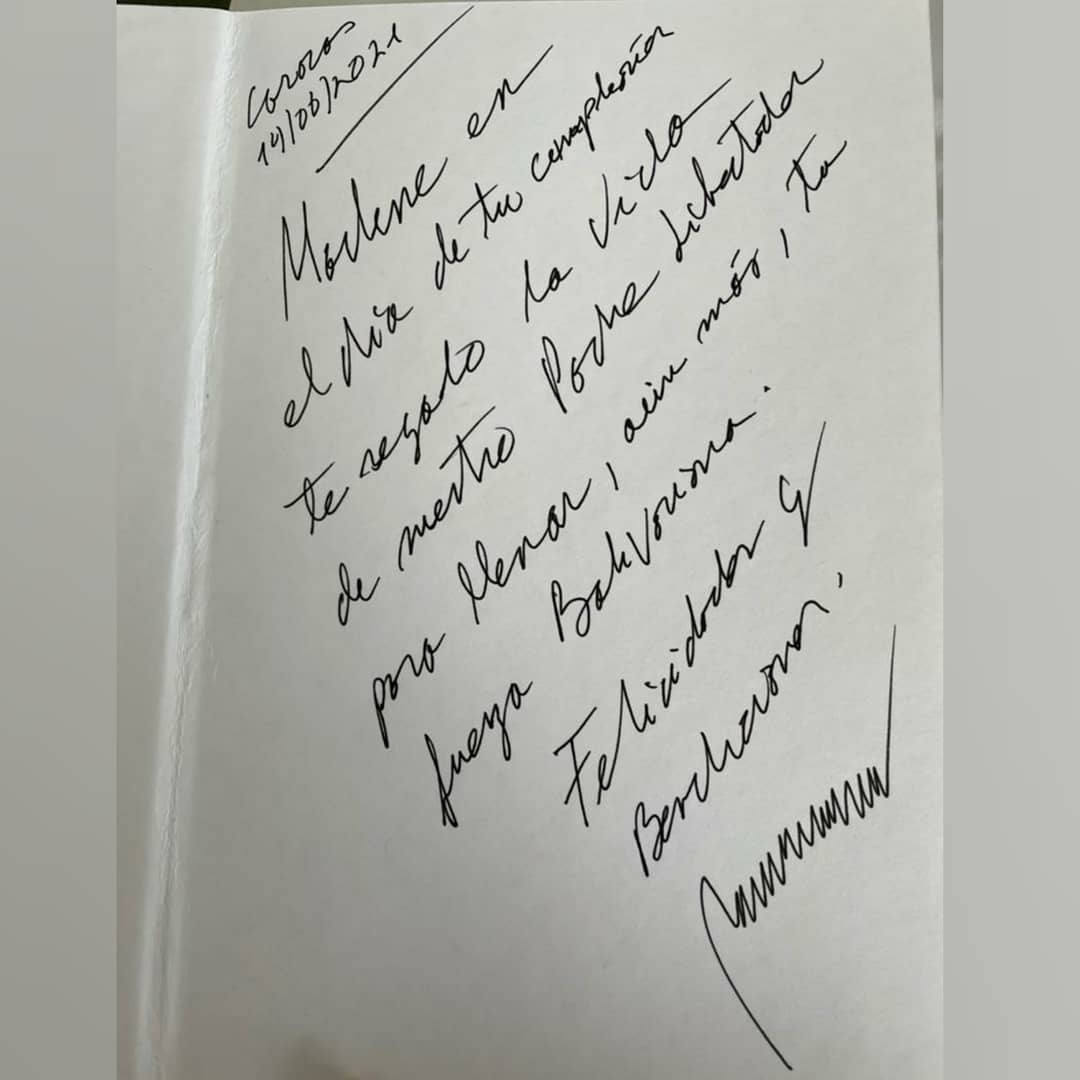 Caracas
14/06/2021
Marlene en
el día de tu cumpleaños
te regalo la vida
de nuestro Padre Libertador
para llenar, aún más, tu
fuerza Bolivariana.
Felicidades y
Bendiciones.